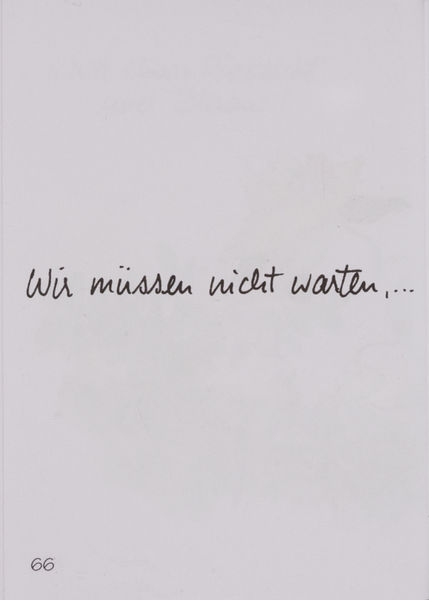 Wir müssen nicht warten,...
66